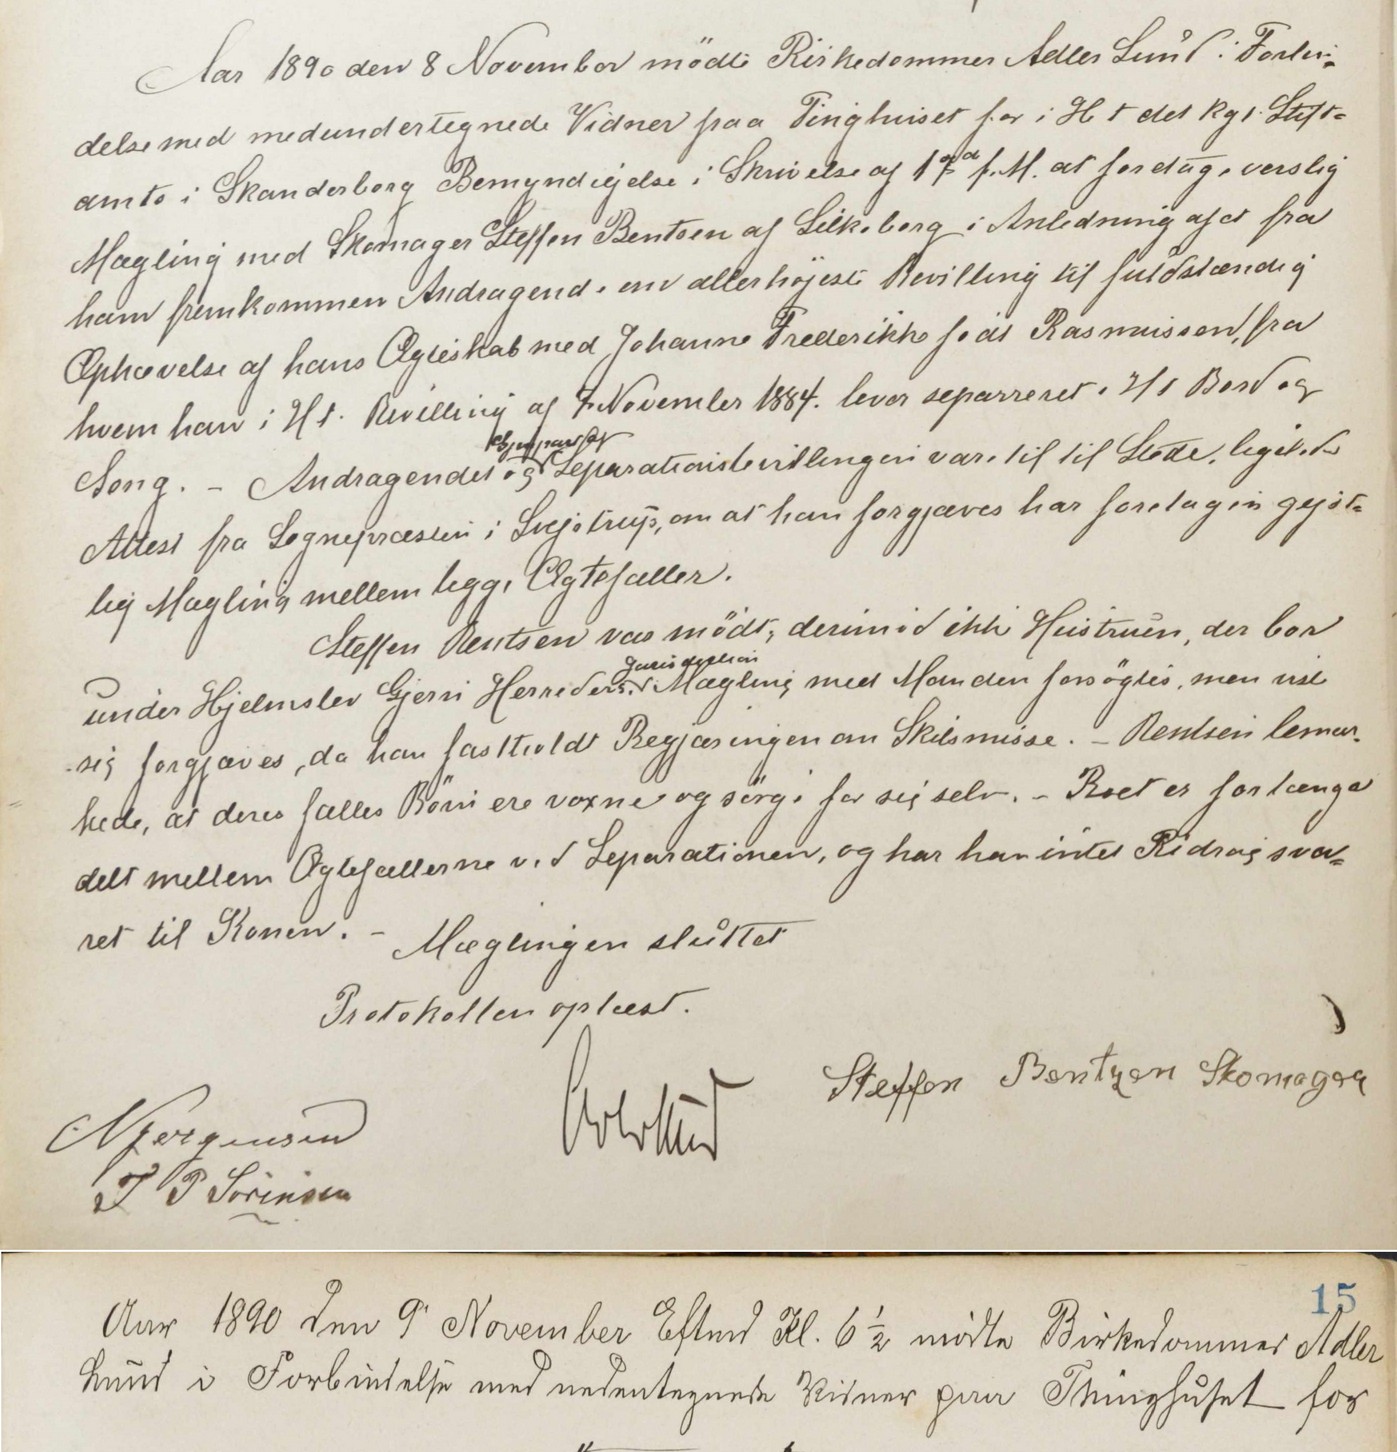 Aar 1890 den 8 November mödte Birkedommer Adler Lund i Forbin-
delse med medundertegnede Vidner paa Tinghuset for i H t det kgl. Stift-
amts i Skanderborg Bemyndigelse i Skrivelse af f. M. at foretage verslig
Mægling med Skomager Steffen Bentsen af Silkeborg i Anledning af et fra
ham fremkommen Andragende om allerhöjeste Bevilling til fuldstændig
Ophævelse af hans Ægteskab med Johanne Frederikke födt Rasmussen, fra
hvem han i H t. Bevilling af 7 November 1884. lever separeret i H t Bord og
Seng. – Andragendet og Separationsbevillingen vare til til Stede, ligeledes
Attest fra Sognepræsten i Svejstrup, om at han forgjæves har foretagen gejst-
lig Mægling mellem begge Ægtefæller.
Steffen Bentsen var mödt, derimod ikke Hustruen, der bor
under Hjelmslev Gjern Herreders Jurisdiktion. Mægling med Manden forsögtes, men viste
sig forgjæves, da han fastholdt Begjæringen om Skilsmisse. – Bentsen bemær-
kede, at deres fælles Börn ere voxne og sörge for sig selv. – Boet er forlængst
delt mellem Ægtefællerne ved Separationen, og har han intet Bidrag sva-
ret til Konen. – Mæglingen sluttet
Protokollen oplæst.
Steffen Bentzen Skomager
Adler Lund
N Jørgensen
J P Sörensen
15
Aar 1890 den 9 November Eftmd Kl. 6 ½ mödte Birkedommer Adler
Lund i Forbindelse med nedentegnede Vidner paa Thinghuset for